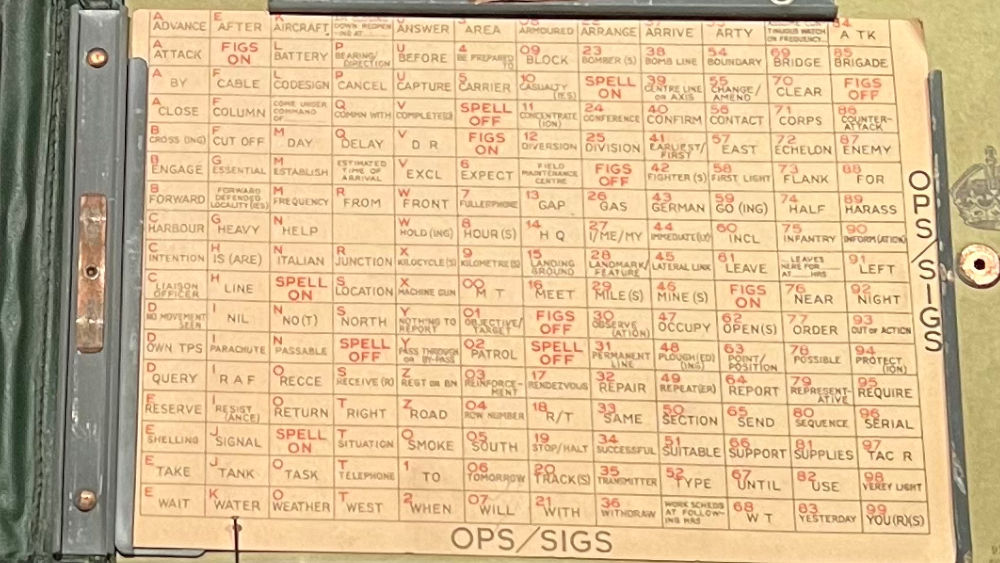 A ADVANCE E AFTER K AIRCRAFT DOWN U ANSWER S AREA 08 ARMOURED 22 ARRANGE 37 ARRIVE 53 ARTY TINUOUS WATCH ON FREQUENCY 84 A TK
A ATTACK FIGS ON L BATTERY P BEARING/DIRECTION U BEFORE 4 BE PREPARED TO 09 BLOCK 23 BOMBER (S) 38 BOMB LINE 54 BOUNDARY 69 BRIDGE 85 BRIGADE
A BY F CABLE L CODESIGN P CANCEL U CAPTURE S CARRIER 10 CASUALTY (IES) SPELL ON 39 CENTRE LINE OR AXIS 55 CHANGE/AMEND 70 CLEAR FIGS OFF
A CLOSE F COLUMN COME UNDER COMMAND OF Q COMMN WITH V COMPLETE(D) SPELL OFF 11 CONCENTRATE (ION) 24 CONFERENCE 40 CONFIRM 56 CONTACT 71 CORPS 86 COUNTER-ATTACK
B CROSS (ING) F CUT OFF M DAY Q DELAY V D R FIGS ON 12 DIVERSION 25 DIVISION 41 EARLIEST/FIRST 57 EAST 72 ECHELON 87 ENEMY
B ENGAGE G ESSENTIAL M ESTABLISH ESTIMATED TIME OF ARRIVAL V EXCL 6 EXPECT FIELD MAINTENANCE CENTRE FIGS OFF 42 FIGHTER (S) 58 FIRST LIGHT 73 FLANK 88 FOR
B FORWARD FORWARD DEFENDED LOCALITY (IES) M FREQUENCY R FROM W FRONT 7 FULLERPHONE 13 GAP 26 GAS 43 GERMAN 59 GO (ING) 74 HALF 89 HARASS
C HARBOUR G HEAVY N HELP W HOLD (ING) 8 HOUR (S) 14 H Q 27 I/ME/MY 44 IMMEDIATE(LY) 60 INCL 75 INFANTRY 90 INFORM (ATION)
C INTENTION H IS (ARE) N ITALIAN R JUNCTION X KILOCYCLE (S) 9 KILOMETRE (S) 15 LANDING GROUND 28 LANDMARK/FEATURE 45 LATERAL LINK 61 LEAVE ....LEAVES HERE FOR.... AT.....HRS 91 LEFT
C LIAISON OFFICER H LINE SPELL ON S LOCATION X MACHINE GUN 00 M T 16 MEET 29 MILE (S) 46 MINE (S) FIGS ON 76 NEAR 92 NIGHT
D NO MOVEMENT SEEN I NIL N NO(T) S NORTH Y NOTHING TO REPORT 01 OBJECTIVE/TARGET FIGS OFF 30 OBSERVE (ATION) 47 OCCUPY 62 OPEN(S) 77 ORDER 93 OUT OF ACTION
D OWN TPS I PARACHUTE N PASSABLE SPELL OFF Y PASS THROUGH OR BY-PASS 02 PATROL SPELL OFF 31 PERMANENT LINE 48 PLOUGH(ED) (ING) 63 POINT/POSITION 78 POSSIBLE 94 PROTECT (ION)
D QUERY I R A F O RECCE S RECEIVE (R) Z REGT OR BN 03 REINFORCE-MENT 17 RENDEZVOUS 32 REPAIR 49 REPEAT(ER) 64 REPORT 79 REPRESENT-ATIVE 95 REQUIRE
E RESERVE I RESIST (ANCE) O RETURN T RIGHT Z ROAD 04 ROW NUMBER 18 R/T 33 SAME 50 SECTION 65 SEND 80 SEQUENCE 96 SERIAL
E SHELLING J SIGNAL SPELL ON T SITUATION 0 SMOKE 05 SOUTH 19 STOP/HALT 34 SUCCESSFUL 51 SUITABLE 66 SUPPORT 81 SUPPLIES 97 TAC R
E TAKE J TANK O TASK T TELEPHONE 1 TO 06 TOMORROW 20 TRACK(S) 35 TRANSMITTER 52 TYPE 67 UNTIL 82 USE 98 VEREY LIGHT
E WAIT K WATER O WEATHER T WEST 2 WHEN 07 WILL 21 WITH 36 WITHDRAW WORK SCHEDS AT FOLLOW-ING HRS 68 W T 83 YESTERDAY 99 YOU(R)(S)
OPS/SIGS
OPS/SIGS